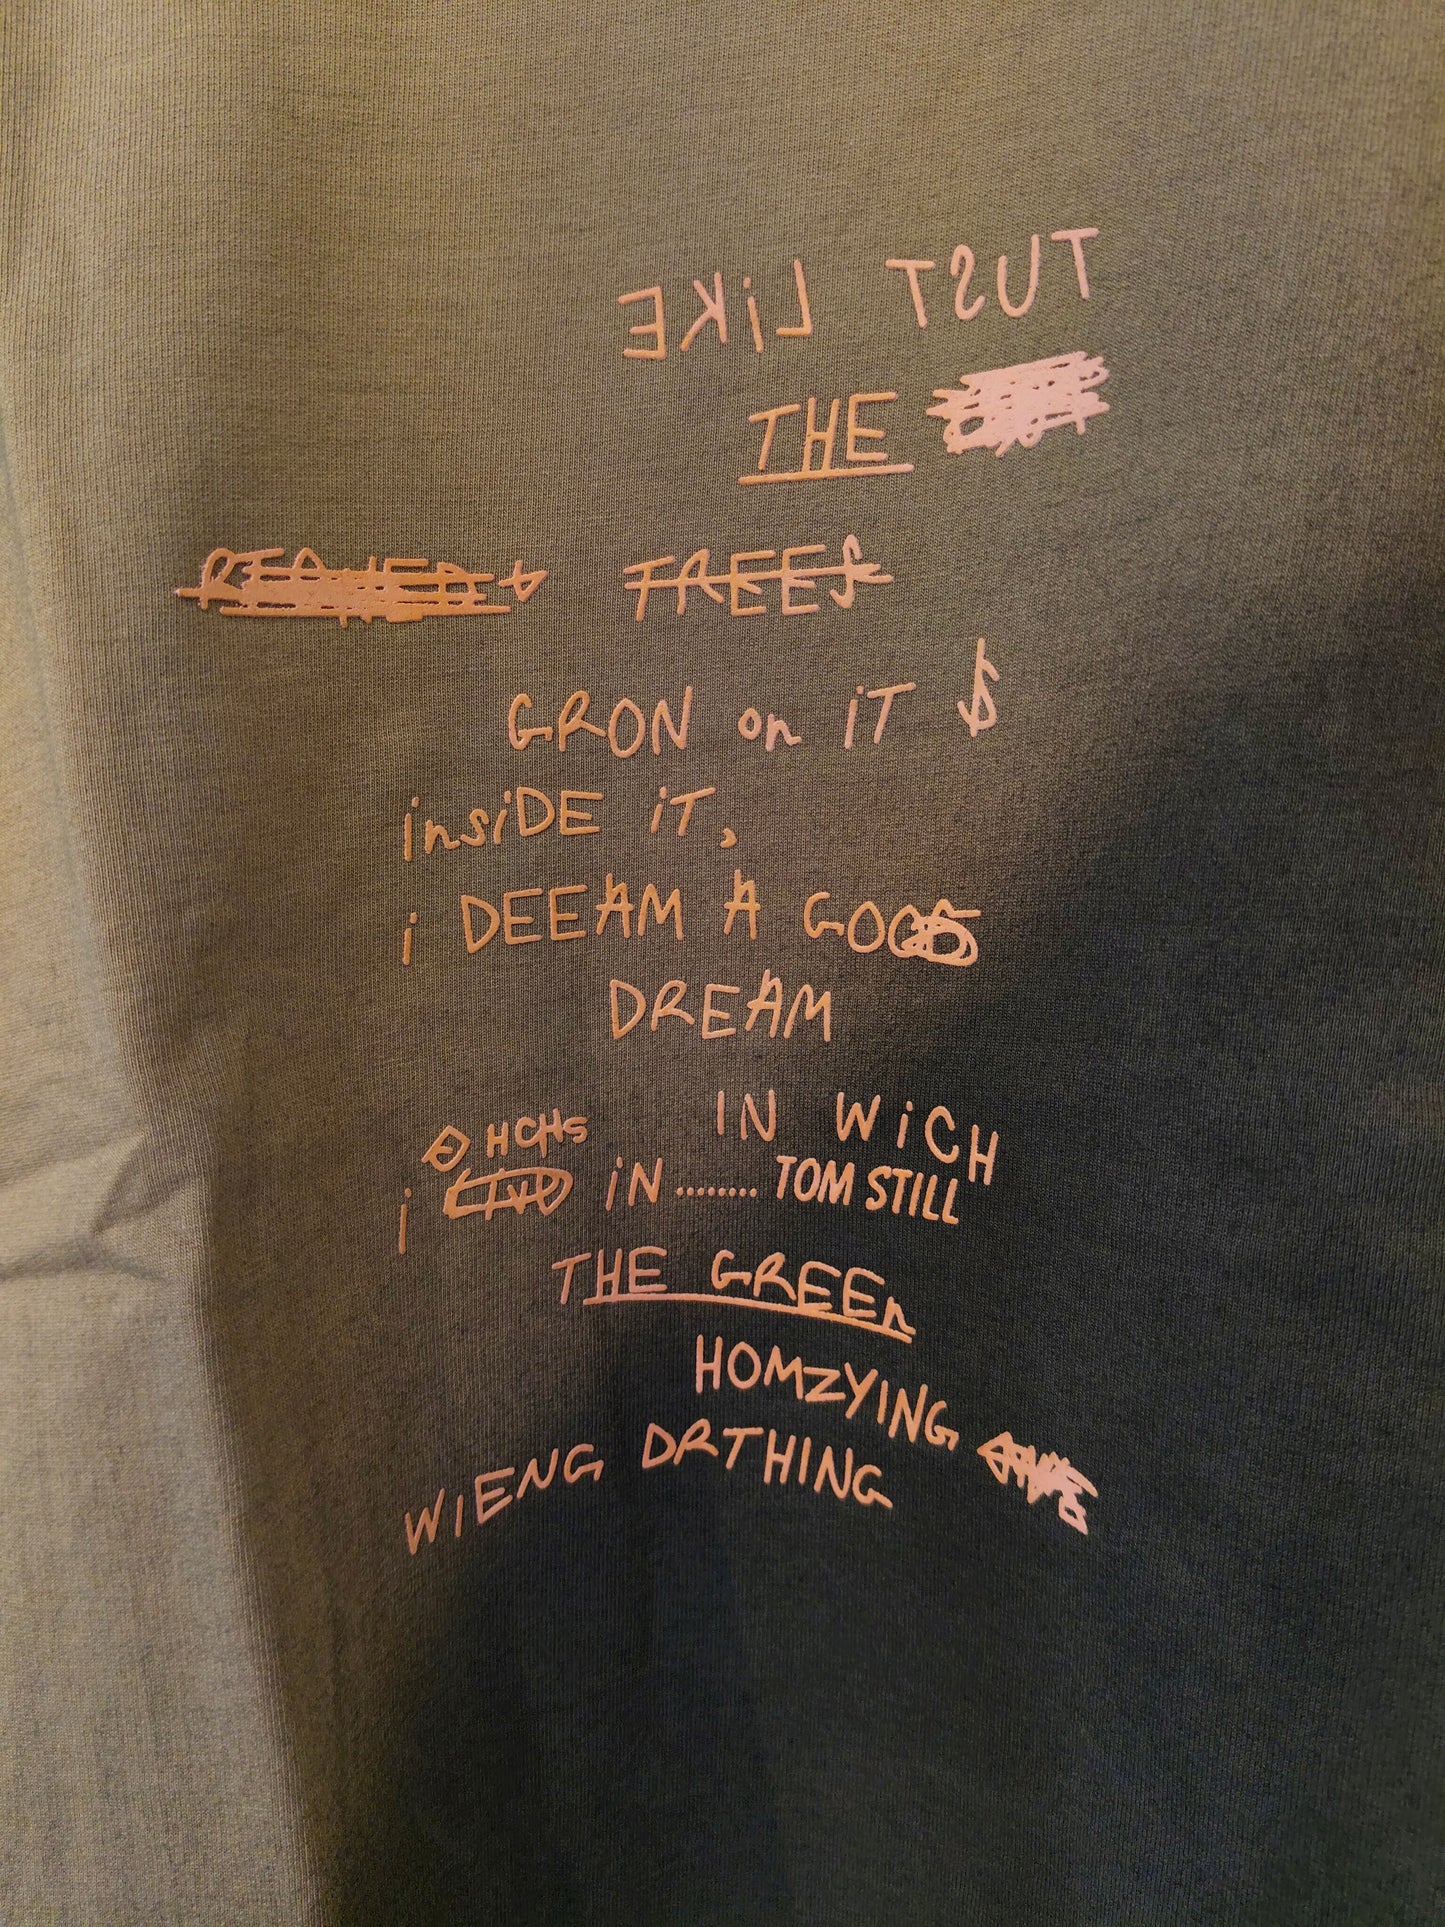 TUST LiKE
THE
TREES
GRON on iT &
insiDE iT,
i DEEAM A GOO
DREAM
IN WiCH
HCHS
i iN ........ TOM STILL
THE GREEn
HOMZYING
WIENG DRTHING